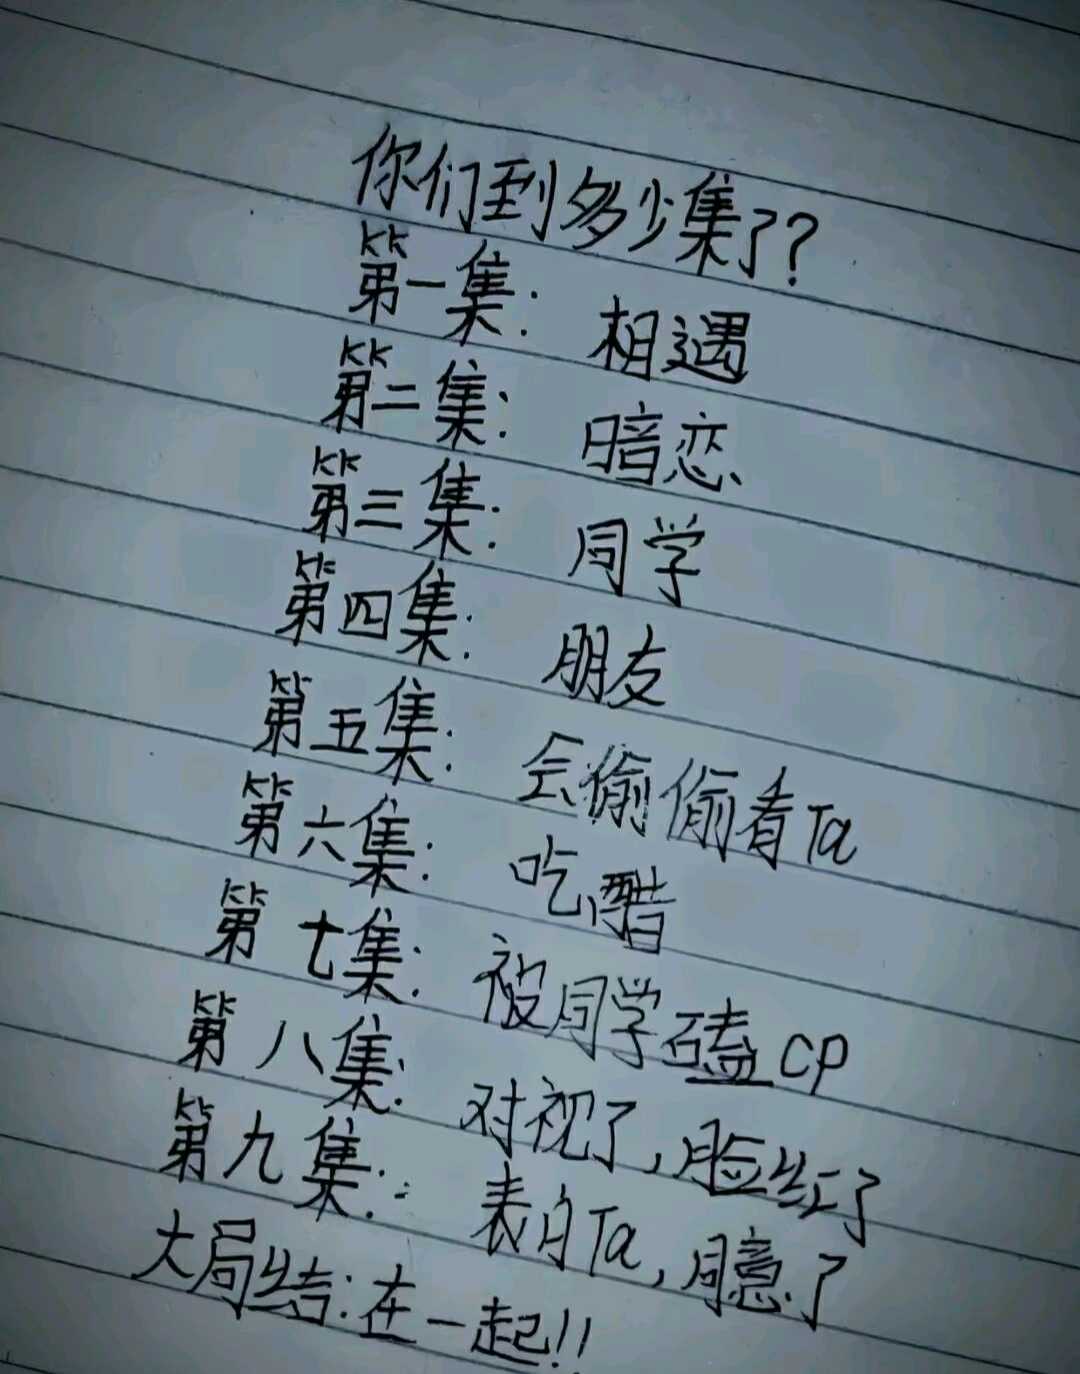 你们到多少集了?
第一集: 相遇
第二集: 暗恋
第三集: 同学
第四集: 朋友
第五集: 会偷偷看Ta
第六集: 吃醋
第七集: 被同学磕CP
第八集: 对视了,脸红了
第九集: 表白Ta,同意了
大局结:在一起!!